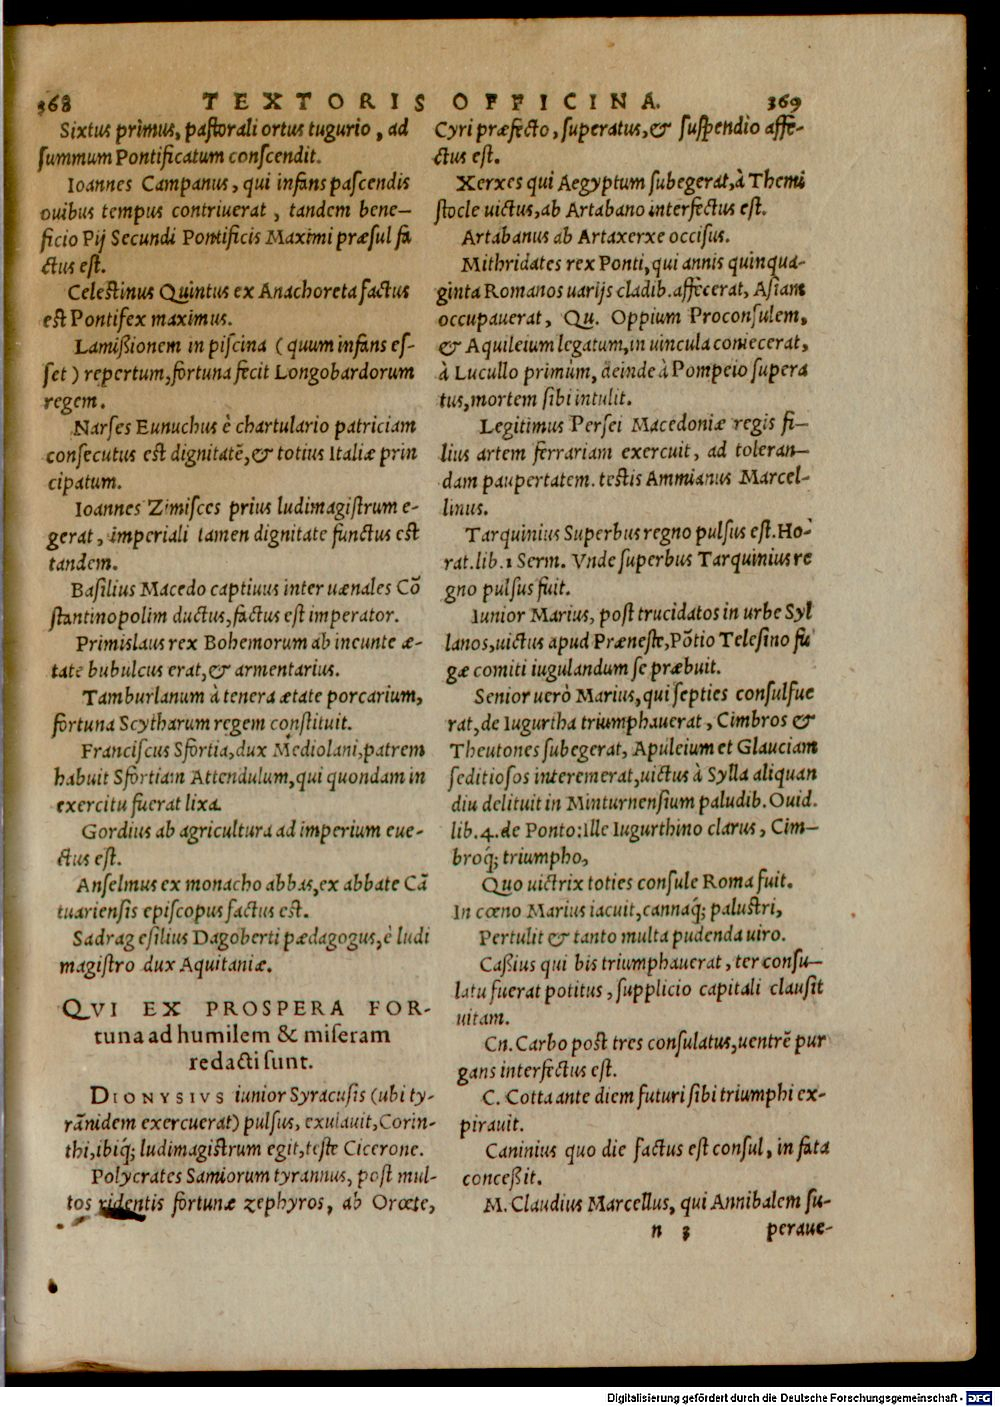 368 TEXTORIS OFFICINA. 369
Sixtus primus, pastorali ortus tugurio, ad
summum Pontificatum conscendit.
Ioannes Campanus, qui infans pascendis
ouibus tempus contriuerat, tandem bene–
ficio Pij Secundi Pontificis Maximi præsul fa
ctus est.
Celestinus Quintus ex Anachoreta factus
est Pontifex maximus.
Lamißionem in piscina (quum infans es-
set) repertum, fortuna fecit Longobardorum
regem.
Narses Eunuchus è chartulario patriciam
consecutus est dignitatē, & totius Italiæ prin
cipatum.
Ioannes Zimisces prius ludimagistrum e-
gerat, imperiali tamen dignitate functus est
tandem.
Basilius Macedo captiuus inter uænales Cō
stantinopolim ductus, factus est imperator.
Primislaus rex Bohemorum ab incunte æ-
tate bubulcus erat, & armentarius.
Tamburlanum à tenera ætate porcarium,
fortuna Scytharum regem constituit.
Franciscus Sfortia, dux Mediolani, patrem
habuit Sfortiam Attendulum, qui quondam in
exercitu fuerat lixa.
Gordius ab agricultura ad imperium eue-
ctus est.
Anselmus ex monacho abbas, ex abbate Cā
tuariensis episcopus factus est.
Sadragesilius Dagoberti pædagogus, è ludi
magistro dux Aquitaniæ.
QVI EX PROSPERA FOR-
tuna ad humilem & miseram
redacti sunt.
DIONYSIVS iunior Syracusis (ubi ty-
rānidem exercuerat) pulsus, exulauit, Corin-
thi, ibiq; ludimagistrum egit, teste Cicerone.
Polycrates Samiorum tyrannus, post mul-
tos ridentis fortunæ zephyros, ab Orœte,
Cyri præfecto, superatus, & suspendio affe-
ctus est.
Xerxes qui Aegyptum subegerat, à Themi
stocle uictus, ab Artabano interfectus est.
Artabanus ab Artaxerxe occisus.
Mithridates rex Ponti, qui annis quinqua-
ginta Romanos uarijs cladib. affecerat, Asiam
occupauerat, Qu. Oppium Proconsulem,
& Aquileium legatum, in uincula coniecerat,
à Lucullo primùm, deinde à Pompeio supera
tus, mortem sibi intulit.
Legitimus Persei Macedoniæ regis fi–
lius artem ferrariam exercuit, ad toleran–
dam paupertatem. testis Ammianus Marcel-
linus.
Tarquinius Superbus regno pulsus est. Ho-
rat. lib. 1 Serm. Vnde superbus Tarquinius re
gno pulsus fuit.
Iunior Marius, post trucidatos in urbe Syl
lanos, uictus apud Præneste, Pōtio Telesino fu
gæ comiti iugulandum se præbuit.
Senior uerò Marius, qui septies consul fue
rat, de Iugurtha triumphauerat, Cimbros &
Theutones subegerat, Apuleium et Glauciam
seditiosos interemerat, uictus à Sylla aliquan
diu delituit in Minturnensium paludib. Ouid.
lib. 4. de Ponto: ille Iugurthino clarus, Cim–
broq; triumpho,
Quo uictrix toties consule Roma fuit.
In cœno Marius iacuit, cannaq; palustri,
Pertulit & tanto multa pudenda uiro.
Caßius qui bis triumphauerat, ter consu–
latu fuerat potitus, supplicio capitali clausit
uitam.
Cn. Carbo post tres consulatus, uentrē pur
gans interfectus est.
C. Cotta ante diem futuri sibi triumphi ex-
pirauit.
Caninius quo die factus est consul, in fata
conceßit.
M. Claudius Marcellus, qui Annibalem su-
n 3 peraue-
Digitalisierung gefördert durch die Deutsche Forschungsgemeinschaft - DFG